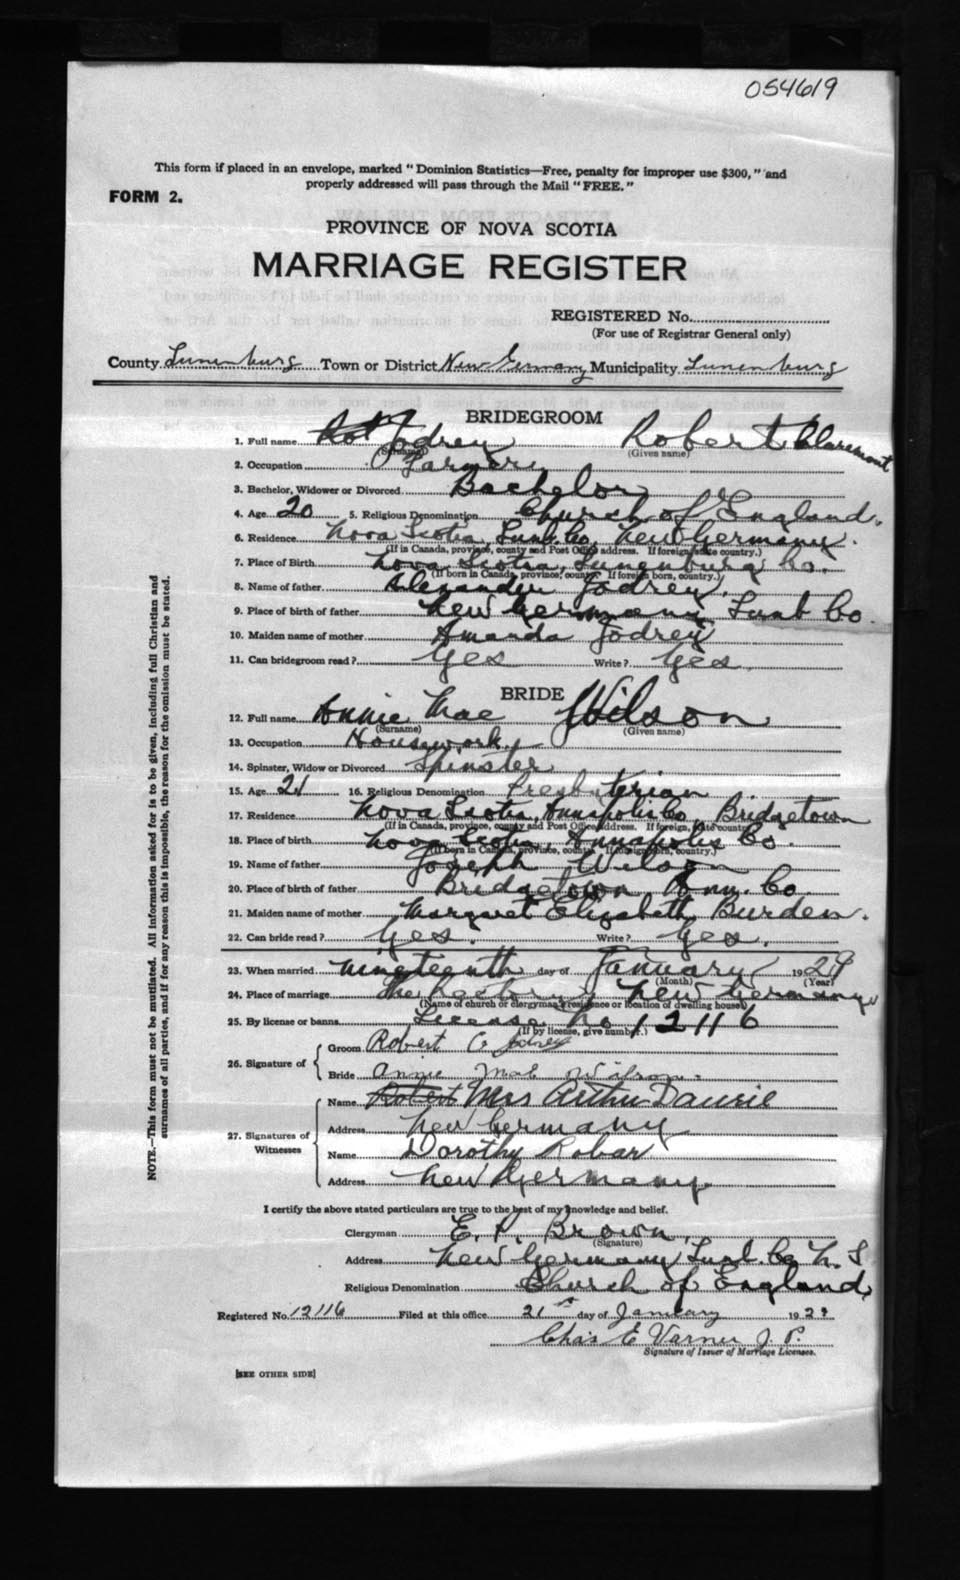 054619
This form if placed in an envelope, marked "Dominion Statistics—Free, penalty for improper use $300," and
properly addressed will pass through the Mail "FREE."
FORM 2.
PROVINCE OF NOVA SCOTIA
MARRIAGE REGISTER
REGISTERED No.
(For use of Registrar General only)
County Lunenburg Town or District New Germany Municipality Lunenburg
BRIDEGROOM
1. Full name Rob Jodrey Robert Claremont
(Surname) (Given name)
2. Occupation Farmer
3. Bachelor, Widower or Divorced Bachelor
4. Age 20 5. Religious Denomination Church of England.
6. Residence Nova Scotia, Lunb. Co. New Germany.
(If in Canada, province, county and Post Office address. If foreign, state country.)
7. Place of Birth Nova Scotia, Lunenburg Co.
(If born in Canada, province, county. If foreign born, country.)
8. Name of father Alexander Jodrey.
9. Place of birth of father New Germany, Lunb Co.
10. Maiden name of mother Amanda Jodrey
11. Can bridegroom read? Yes Write? Yes.
BRIDE
12. Full name Annie Mae Wilson
(Surname) (Given name)
13. Occupation Housework
14. Spinster, Widow or Divorced Spinster
15. Age 21 16. Religious Denomination Presbyterian
17. Residence Nova Scotia, Annapolis Co, Bridgetown
(If in Canada, province, county and Post Office address. If foreign, state country)
18. Place of birth Nova Scotia, Annapolis Co.
(If born in Canada, province, county. If foreign born, country.)
19. Name of father Joseph Wilson
20. Place of birth of father Bridgetown, Ann. Co.
21. Maiden name of mother Margaret Elizabeth Burden.
22. Can bride read? Yes. Write? Yes.
23. When married Nineteenth day of January 1929
(Month) (Year)
24. Place of marriage The Rectory, New Germany
(Name of church or clergyman's residence or location of dwelling house)
25. By license or banns License No 12116
(If by license, give number.)
26. Signature of
Groom Robert C Jodrey
Bride Annie Mae Wilson.
27. Signatures of Witnesses
Name Robert Mrs Arthur Daurie
Address New Germany
Name Dorothy Robar
Address New Germany.
I certify the above stated particulars are true to the best of my knowledge and belief.
Clergyman E. P. Brown.
(Signature)
Address New Germany, Lunb. Co. N. S
Religious Denomination Church of England,
Registered No. 12116 Filed at this office 21st day of January 1929
Chas E Varner J. P.
Signature of Issuer of Marriage Licenses.
[SEE OTHER SIDE]
NOTE.—This form must not be mutilated. All information asked for is to be given, including full Christian and
surnames of all parties, and if for any reason this is impossible, the reason for the omission must be stated.